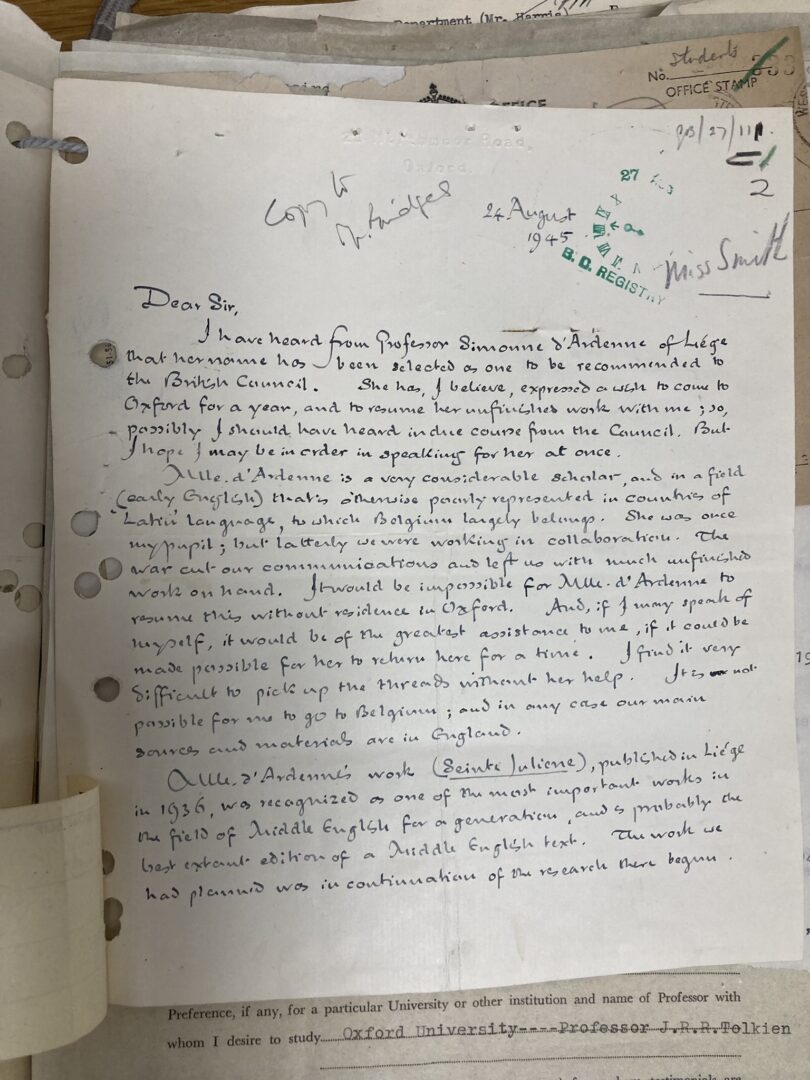 Department (Mr. Harris)
Students
No. 333
OFFICE STAMP
OFFICE
GB/27/111
2
Road,
Oxford.
Copy to
Mr. Bridges
24 August
1945
27 AUG
B.C. REGISTRY
Miss Smith
Dear Sir,
I have heard from Professor Simonne d'Ardenne of Liége
that her name has been selected as one to be recommended to
the British Council. She has, I believe, expressed a wish to come to
Oxford for a year, and to resume her unfinished work with me; so,
possibly I should have heard in due course from the Council. But
I hope I may be in order in speaking for her at once.
Mlle. d'Ardenne is a very considerable scholar, and in a field
(early English) that is otherwise poorly represented in countries of
'Latin' language, to which Belgium largely belongs. She was once
my pupil; but latterly we were working in collaboration. The
war cut our communications and left us with much unfinished
work on hand. It would be impossible for Mlle. d'Ardenne to
resume this without residence in Oxford. And, if I may speak of
myself, it would be of the greatest assistance to me, if it could be
made possible for her to return here for a time. I find it very
difficult to pick up the threads without her help. It is not
possible for me to go to Belgium; and in any case our main
sources and materials are in England.
Mlle. d'Ardenne's work (Seinte Juliene), published in Liége
in 1936, was recognized as one of the most important works in
the field of Middle English for a generation, and is probably the
best extant edition of a Middle English text. The work we
had planned was in continuation of the research there begun.
Preference, if any, for a particular University or other institution and name of Professor with
whom I desire to study Oxford University----Professor J.R.R.Tolkien
testimonials are